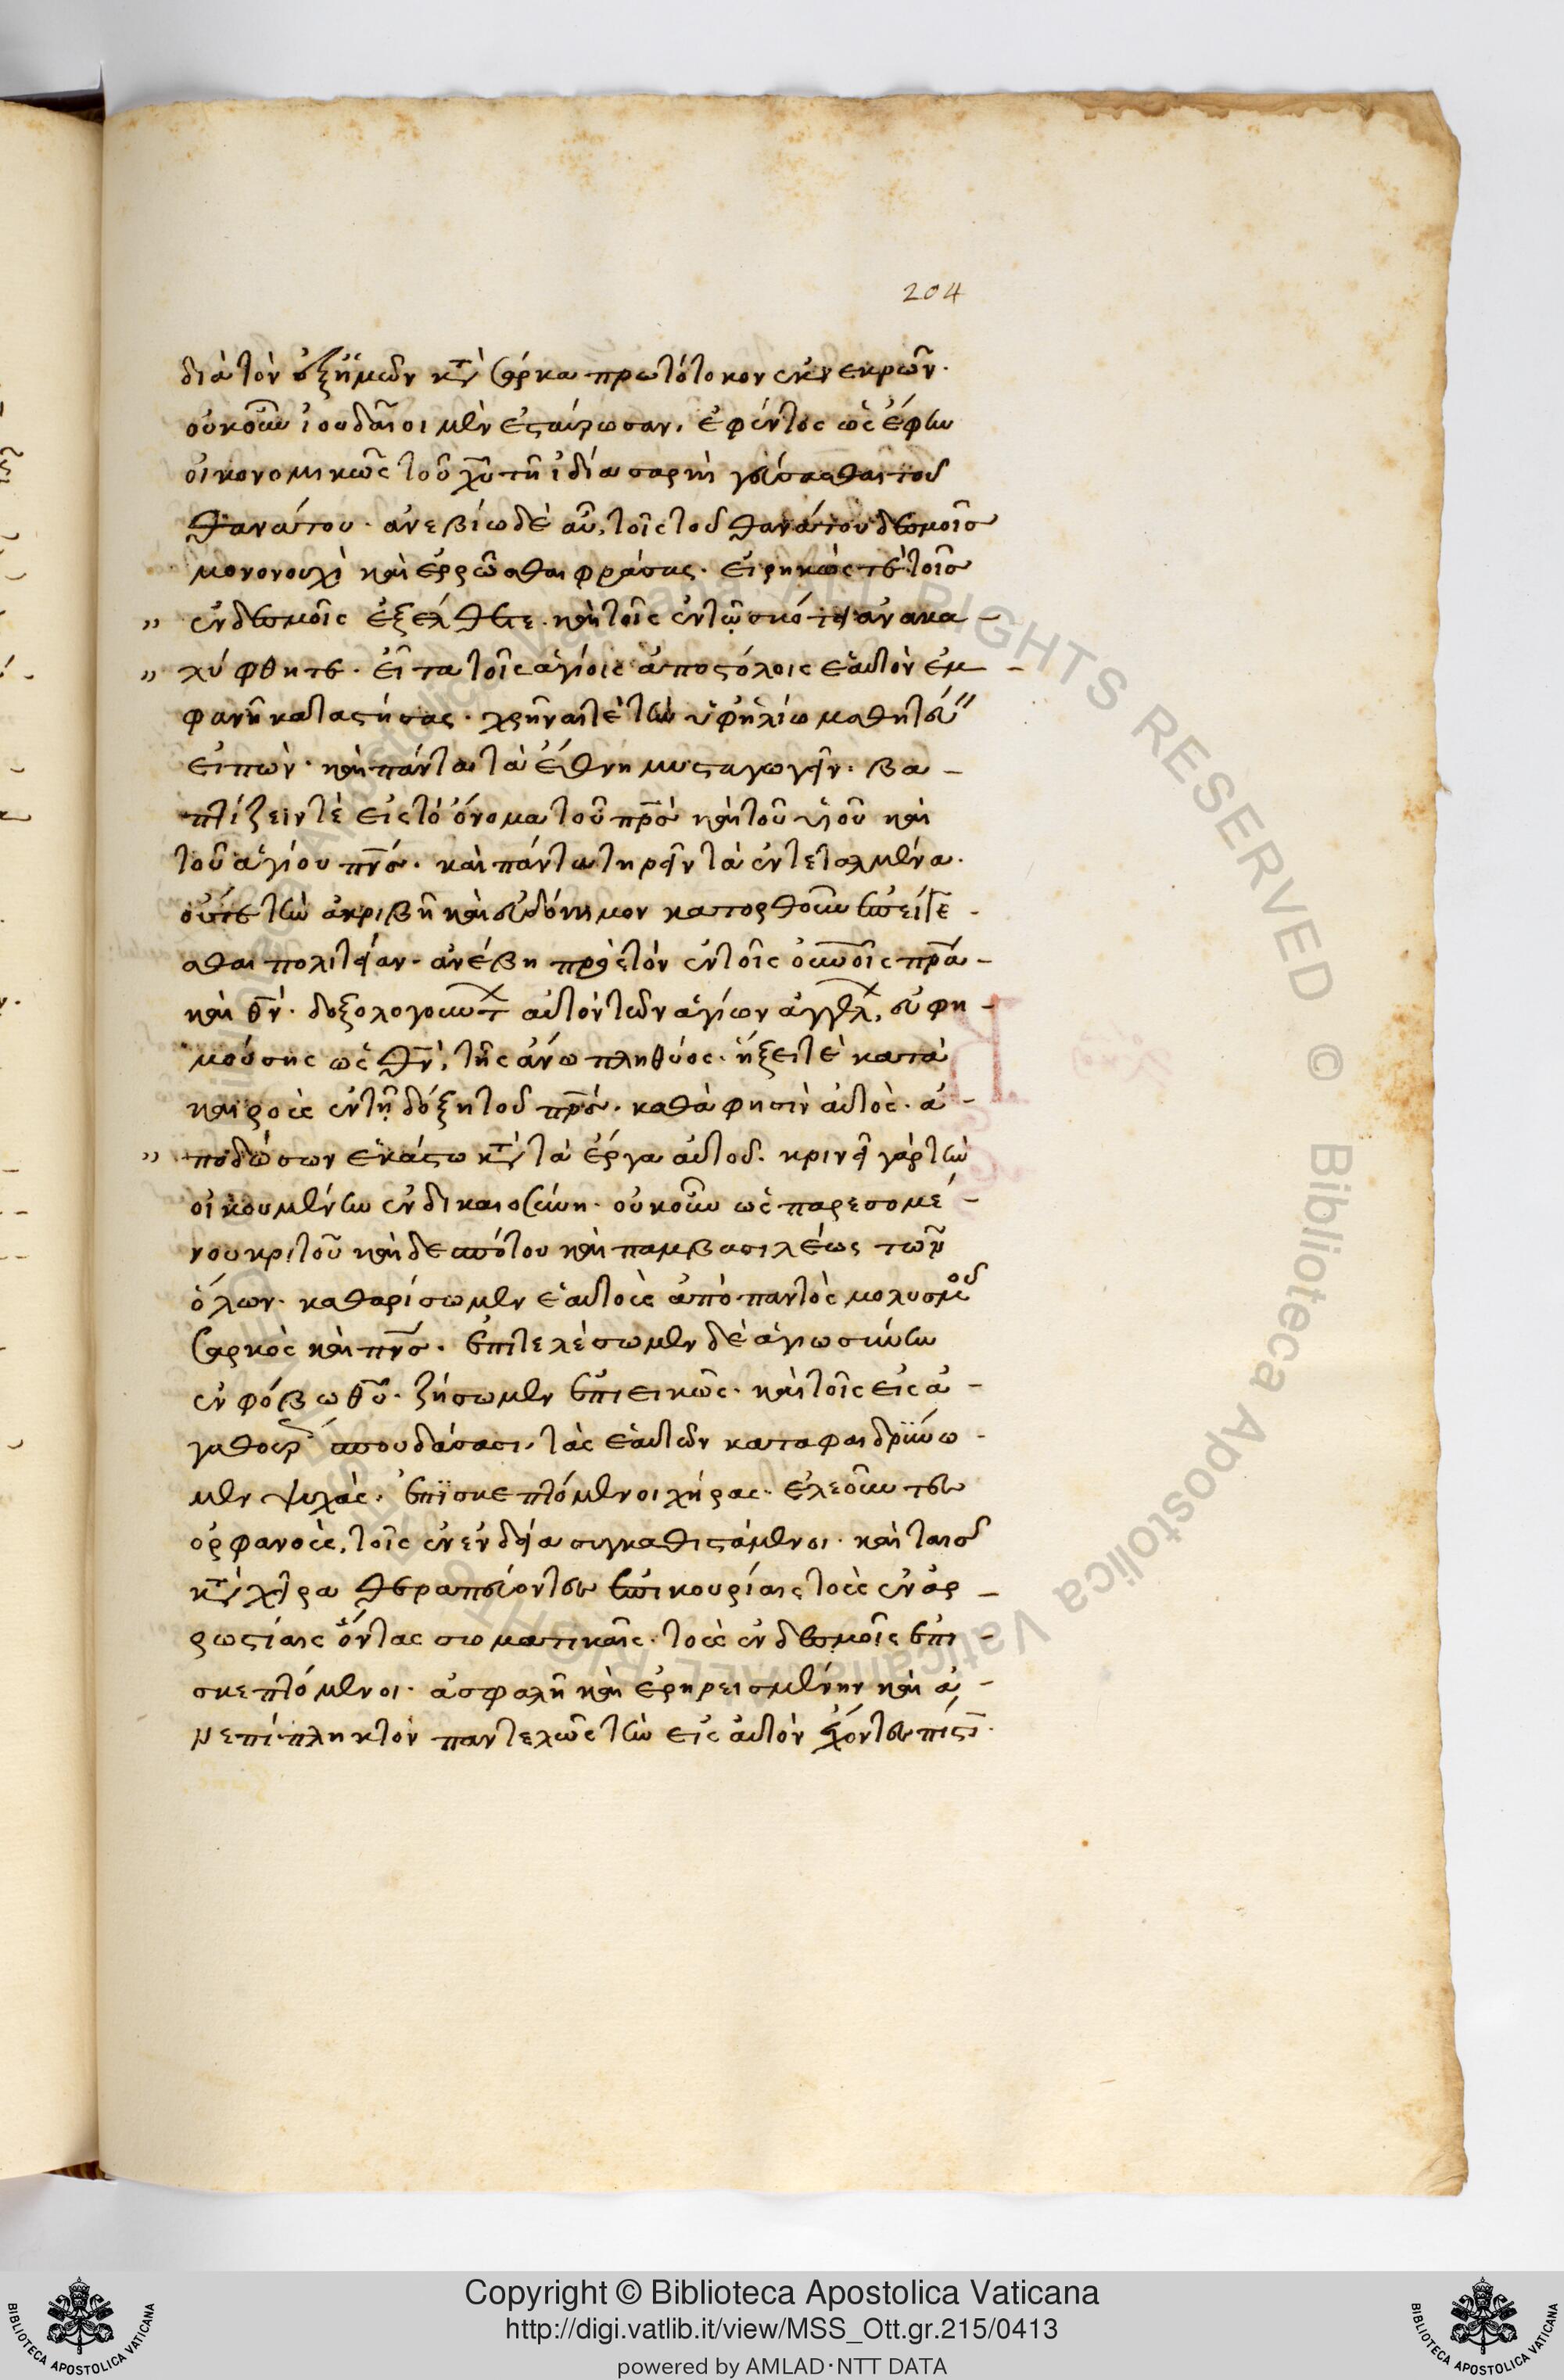 204
διὰ τὸν ἐξ ἡμῶν κτ̀ σάρκα πρωτότοκον ἐκ νεκρῶν.
οὐκοῦν ἰουδαῖοι μὲν ἐσταύρωσαν, ἐφέντος ὡς ἔφην
οἰκονομικῶς τοῦ χυ τῇ ἰδία σαρκὶ γεύσασθαι τοῦ
θανάτου. ἀνεβίω δὲ αὖ, τοῖς τοῦ θανάτου δεσμοῖς
μονονουχὶ καὶ ἐρρῶσθαι φράσας. εἰρηκώς τε τοῖς
" ἐν δεσμοῖς ἐξέλθετε. καὶ τοῖς ἐν τῶ σκότει ἀνακα -
" λύφθητε. εἶτα τοῖς ἁγίοις ἀποστόλοις ἑαυτὸν ἐμ -
φανῆ καταστήσας. χρῆναί τε τὴν ὑφηλίω μαθητεύ
εἰπὼν. καὶ πάντα τὰ ἔθνη μυσταγωγεῖν. βα -
πτίζειν τὲ εἰς τὸ ὄνομα τοῦ πρσ καὶ τοῦ υἱοῦ καὶ
τοῦ ἁγίου πνσ. καὶ πάντα τηρεῖν τὰ ἐντεταλμένα.
οὕτω τὴν ἀκριβῆ καὶ εὐδόκιμον κατορθοῦν ἐπείγε -
σθαι πολιτείαν. ἀνέβη πρὸς τὸν ἐν τοῖς οὐνοῖς πρα -
καὶ θν. δοξολογουντ αὐτὸν τῶν ἁγίων ἀγγελ, εὐφη -
μούσης ὡς θν, τῆς ἄνω πληθύος. ἥξει τὲ κατὰ
καιροὺς ἐν τῇ δόξη τοῦ πρσ. καθὰ φησὶν αὐτὸς. ἀ -
" ποδώσων ἑκάστω κτ̀ τὰ ἔργα αὐτοῦ. κρινεῖ γὰρ τὴν
οἰκουμένην ἐν δικαιοσύνη. οὐκοῦν ὡς παρεσομέ -
νου κριτοῦ καὶ δεσπότου καὶ παμβασιλέως τῶν
ὅλων. καθαρίσωμεν ἑαυτοὺς ἀπὸ παντὸς μολυσμοῦ
σαρκὸς καὶ πνσ. ἐπιτελέσωμεν δὲ ἁγιωσύνην
ἐν φόβω θυ. ζήσωμεν ἐπιεικῶς. καὶ τοῖς εἰς ἀ -
γαθουρ σπουδάσασι, τὰς ἑαυτῶν καταφαιδρύνω -
μεν ψυχὰς. ἐπισκεπτόμενοι χήρας. ἐλεοῦντες
ὀρφανοὺς, τοῖς ἐν ἐνδεία συγκαθιστάμενοι. καὶ ταῖς
κτ̀ χεῖρα θεραπεύοντες ἐπικουρίαις τοὺς ἐν ἀρ -
ρωστίαις ὄντας σωματικαῖς. τοὺς ἐν δεσμοῖς ἐπι -
σκεπτόμενοι. ἀσφαλῆ καὶ ἐρηρεισμένην καὶ ἀ -
νεπίπληκτον παντελῶς τὴν εἰς αὐτὸν ἔχοντες πίστ.
Copyright © Biblioteca Apostolica Vaticana
http://digi.vatlib.it/view/MSS_Ott.gr.215/0413
powered by AMLAD·NTT DATA